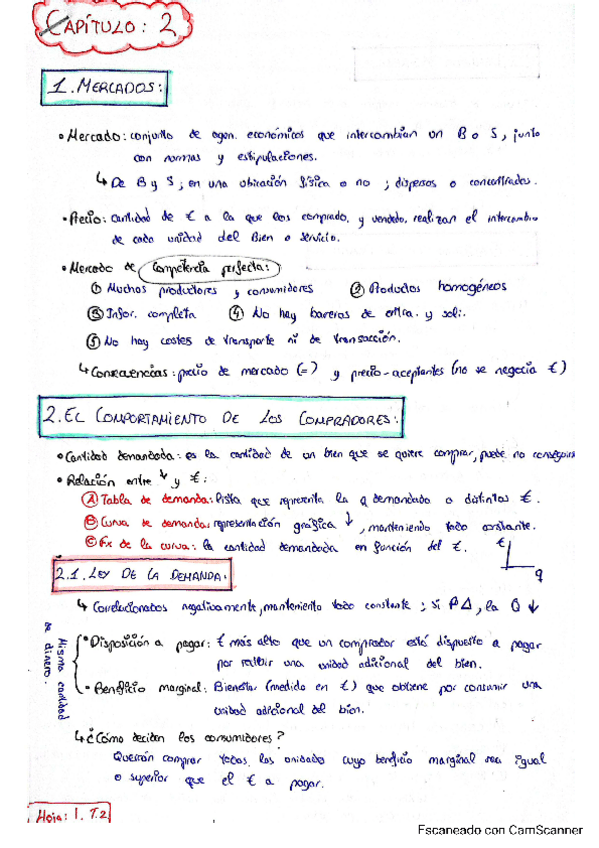 CAPÍTULO: 2
1. MERCADOS:
• Mercado: conjunto de agen. económicos que intercambian un B o S, junto
con normas y estipulaciones.
↳ De B y S; en una ubicación física o no; dispersos o concentrados.
• Precio: cantidad de € a la que los comprado. y vendedo. realizan el intercambio
de cada unidad del Bien o servicio.
• Mercado de competencia perfecta:
① Muchos productores y consumidores ② Productos homogéneos
③ Infor. completa ④ No hay barreras de entra. y sali.
⑤ No hay costes de transporte ni de transacción.
↳ Consecuencias: precio de mercado (=) y precio-aceptantes (no se negocia €)
2. EL COMPORTAMIENTO DE LOS COMPRADORES:
• Cantidad demandada: es la cantidad de un bien que se quiere comprar, puede no conseguirs
• Relación entre ↓ y €:
Ⓐ Tabla de demanda: lista que representa la q demandada a distintos €.
Ⓑ Curva de demanda: representación gráfica ↓, manteniendo todo constante.
Ⓒ Fx de la curva: la cantidad demandada en función del €. € q
2.1. LEY DE LA DEMANDA.
↳ Correlacionados negativamente, mantenieto todo constante; si P△, la Q ↓
Misma cantidad de dinero.
• Disposición a pagar: € más alto que un comprador está dispuesto a pagar
por recibir una unidad adicional del bien.
• Beneficio marginal: Bienestar (medido en €) que obtiene por consumir una
unidad adicional del bien.
↳ ¿Cómo deciden los consumidores?
Querrán comprar todas las unidades cuyo beneficio marginal sea igual
o superior que el € a pagar.
Hoja: 1. T.2
Escaneado con CamScanner